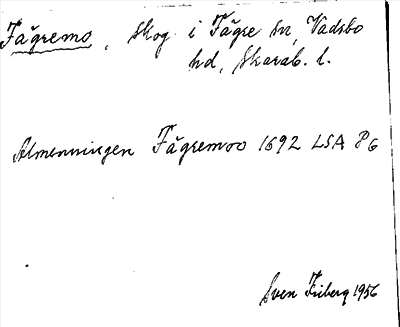 Fägremo, skog i Fägre sn, Vadsbo
hd, Skarab. l.
Almenningen Fägremoo 1692 LSA P6
Sven Friberg 1956